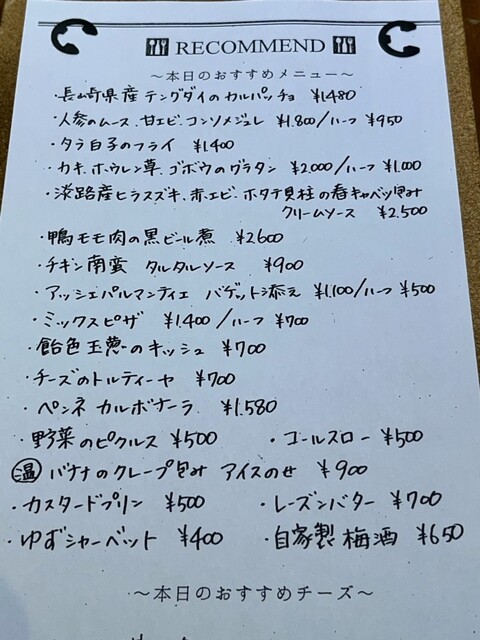 RECOMMEND
～本日のおすすめメニュー～
・長崎県産テングダイのカルパッチョ ¥1480
・人参のムース、甘エビ、コンソメジュレ ¥1.800/ハーフ ¥950
・タラ白子のフライ ¥1.400
・カキ、ホウレン草、ゴボウのグラタン ¥2.000/ハーフ ¥1.000
・淡路産ヒラスズキ、赤エビ、ホタテ貝柱の春キャベツ包み
クリームソース ¥2.500
・鴨モモ肉の黒ビール煮 ¥2600
・チキン南蛮 タルタルソース ¥900
・アッシェパルマンティエ バゲット添え ¥1,100/ハーフ ¥500
・ミックスピザ ¥1.400/ハーフ ¥700
・飴色玉葱のキッシュ ¥700
・チーズのトルティーヤ ¥700
・ペンネ カルボナーラ ¥1.580
・野菜のピクルス ¥500 ・コールスロー ¥500
温 バナナのクレープ包み アイスのせ ¥900
・カスタードプリン ¥500 ・レーズンバター ¥700
・ゆずシャーベット ¥400 ・自家製梅酒 ¥650
～本日のおすすめチーズ～